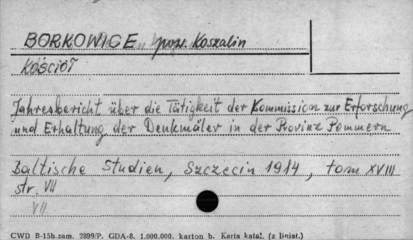 BORKOWICE pow. Koszalin
Kościół
Jahresbericht über die Tätigkeit der Kommission zur Erforschung
und Erhaltung der Denkmäler in der Provinz Pommern
Baltische Studien, Szczecin 1914, tom XVIII
str. VII
VII
CWD B-15b. zam. 2399/P. GDA-8. 1.000.000. karton b. Karta katal. (z liniat.)